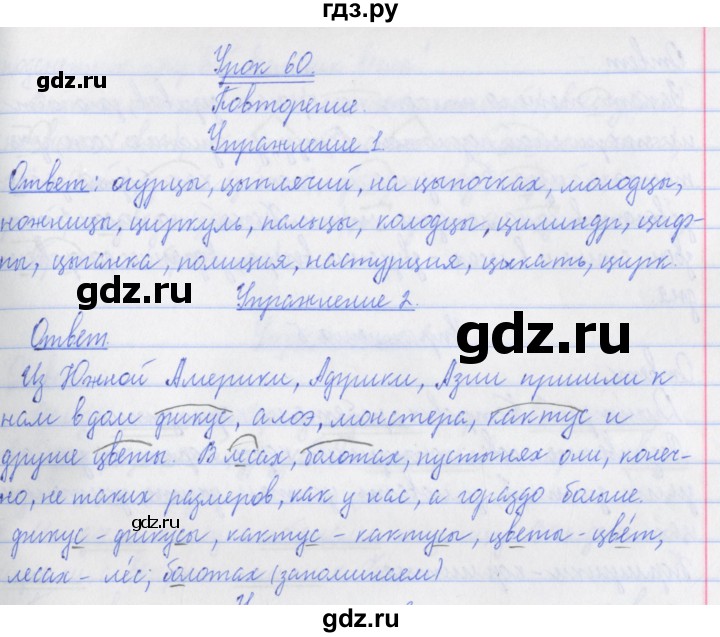 гдз.ру
Урок 60.
gdz.ru
gdz.ru
Повторение.
Упражнение 1.
Ответ: огурцы, цыплячий, на цыпочках, молодцы,
ножницы, циркуль, пальцы, колодцы, цилиндр, циф-
ры, цыганка, полиция, настурция, цыкать, цирк.
gdz.ru
Упражнение 2.
gdz.ru
Ответ
Из Южной Америки, Африки, Азии пришли к
нам в дом фикус, алоэ, монстера, кактус и
другие цветы. В лесах, болотах, пустынях они, конеч-
но, не таких размеров, как у нас, а гораздо больше.
фикус – фикусы, кактус – кактусы, цветы – цвет,
лесах – лес; болотах (запоминаем)
gdz.ru
gdz.ru